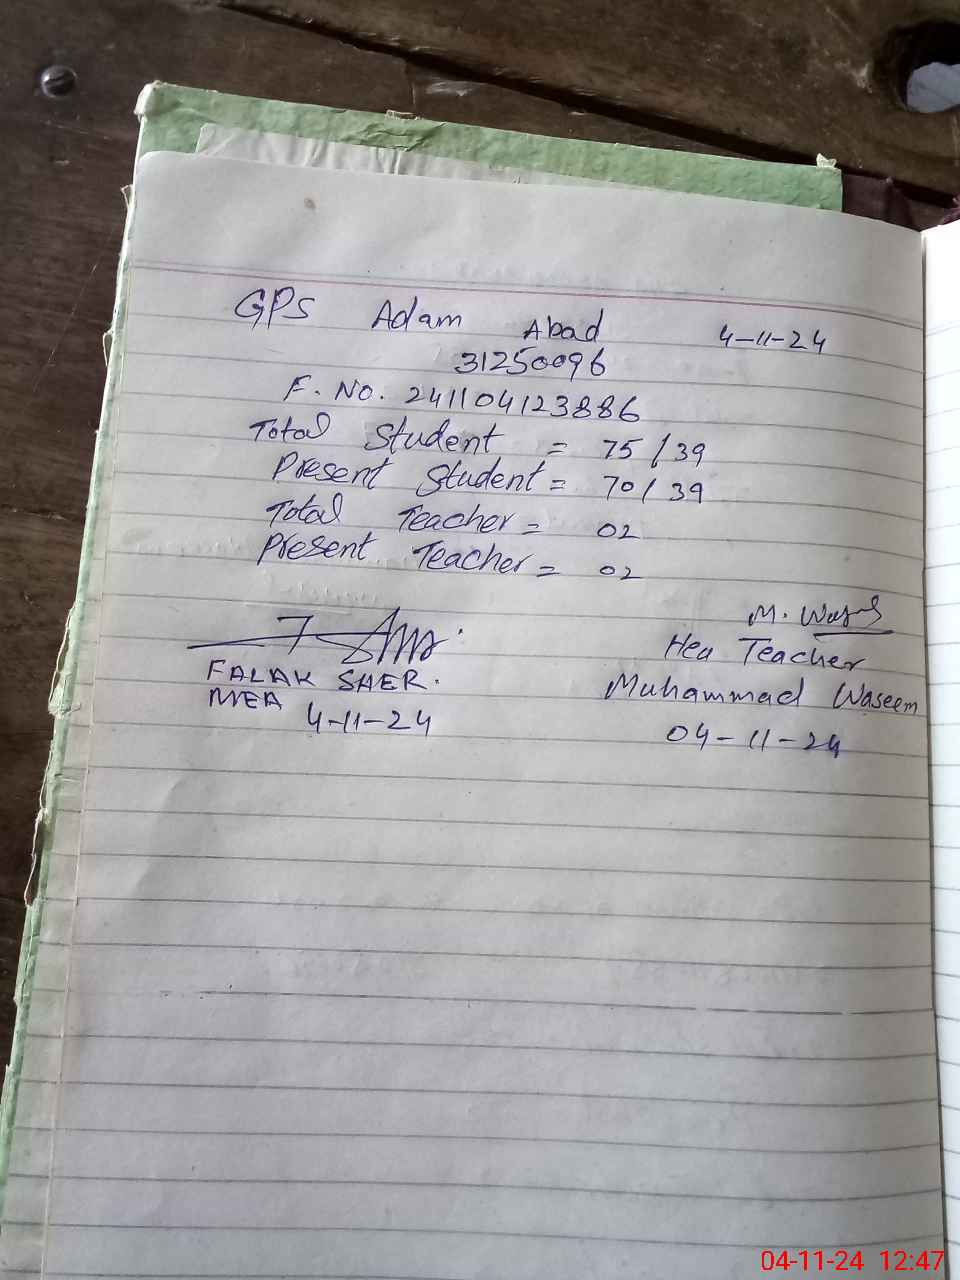 GPS Adam Abad 4-11-24
31250096
F. No. 241104123886
Total Student = 75/39
Present Student = 70/39
Total Teacher = 02
Present Teacher = 02
M. Waseem
Hea Teacher
FALAK SHER.
Muhammad Waseem
MEA
4-11-24
04-11-24
04-11-24 12:47